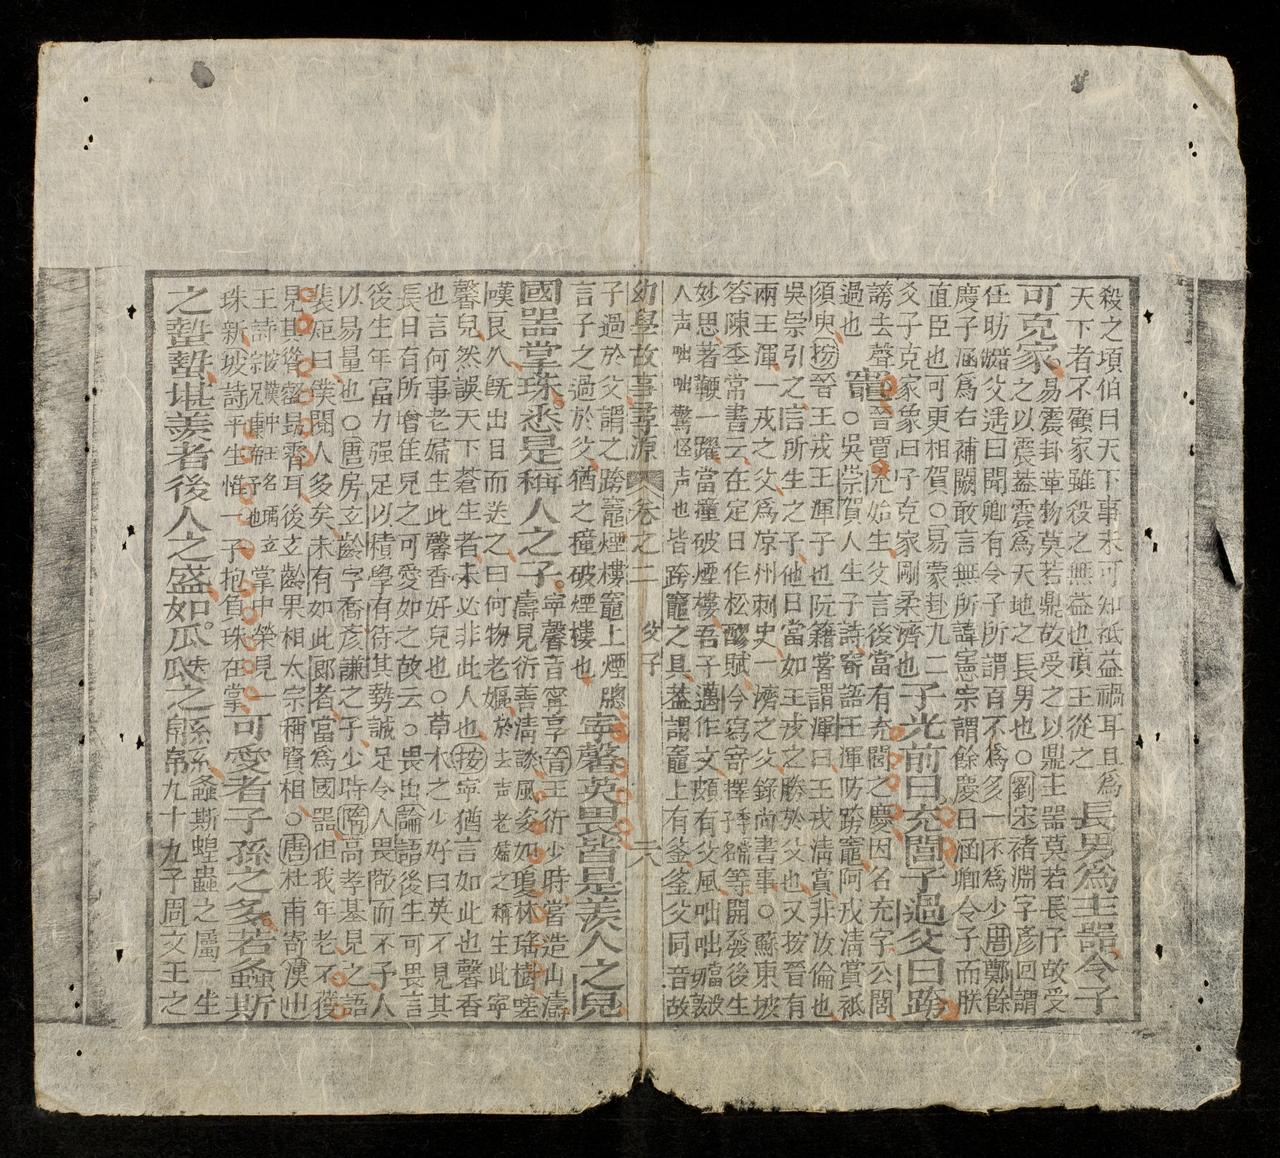 殺之項伯曰天下事未可知祇益禍耳且為
天下者不顧家雖殺之無益也項王從之
長男為主器令子
可克家
易震卦革物莫若鼎故受之以鼎主器莫若長子故受
之以震蓋震為天地之長男也○劉宋褚淵字彥回謂
任昉父遙曰聞卿有令子所謂百不為多一不為少唐鄭餘
慶子涵為右補闕敢言無所諱憲宗謂餘慶曰涵卿令子而朕
直臣也可更相賀○易蒙卦九二
爻子克家象曰子克家剛柔濟也
子光前曰充閭子過父曰跨
竈
晉賈充始生父言後當有充閭之慶因名充字公閭
謗去聲
過也○吳崇賀人生子詩寄語王渾防跨竈阿戎清賞祇
須臾按晉王戎王渾子也阮籍嘗謂渾曰王戎清賞非汝倫也
吳崇引之言所生之子他日當如王戎之勝於父也又按晉有
兩王渾一戎之父為凉州刺史一濟之父錄尚書事○蘇東坡
答陳季常書云在定日作松醪賦今寫寄擇等輩等開發後生
妙思著鞭一躍當撞破煙樓吾子邁作文頗有父風咄咄
人声咄咄驚怪声也皆跨竈之具蓋謂竈上有釜釜父同音故
幼學故事尋源 卷之二 父子 六
子過於父謂之跨竈煙樓竈上煙牕
言子之過於父猶之撞破煙樓也
寧馨英畏皆是羨人之兒
國器掌珠悉是稱人之子
寧馨音寧亨晉王衍少時嘗造山濤
濤見衍善清談風姿如瓊林瑤樹嗟
嘆良久既出目而送之曰何物老嫗於去声老嫗之稱生此寧
馨兒然誤天下蒼生者未必非此人也按寧猶言如此也馨香
也言何事老嫗生此馨香好兒也○草木之少好曰英不見其
長日有所增佳兒之可愛如之故云○畏出論語後生可畏言
後生年富力强足以積學有待其勢誠足令人畏敵而不予人
以易量也○唐房玄齡字喬彥謙之子少時隋高孝基見之語
裴矩曰僕閱人多矣未有如此郎者當為國器但我年老不獲
見其聳壑昂霄耳後玄齡果相太宗稱賢相○唐杜甫寄漢中
王詩
掌中榮見一
珠新坡詩平生惟一子抱負珠在掌
可愛者子孫之多若螽斯
之蟄蟄堪羨者後人之盛如瓜瓞之綿綿
螽斯蝗蟲之屬一生
九十九子周文王之